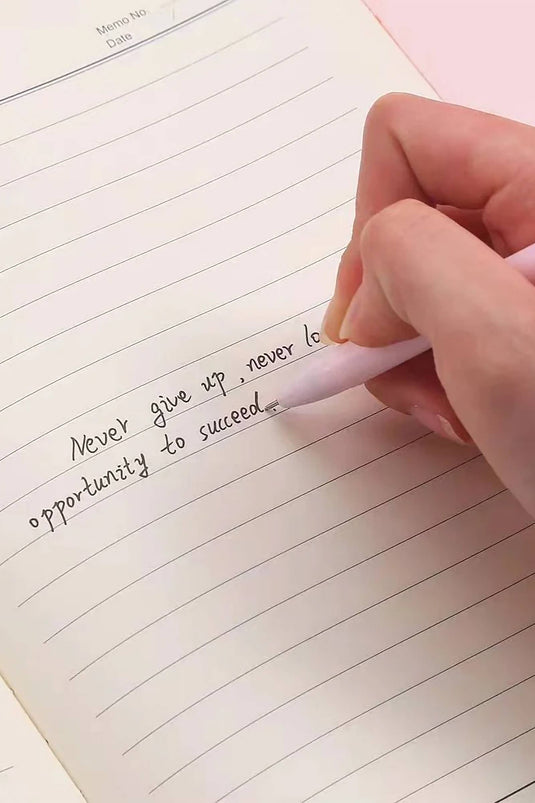 Memo No.
Date
Never give up, never lo
opportunity to succeed.